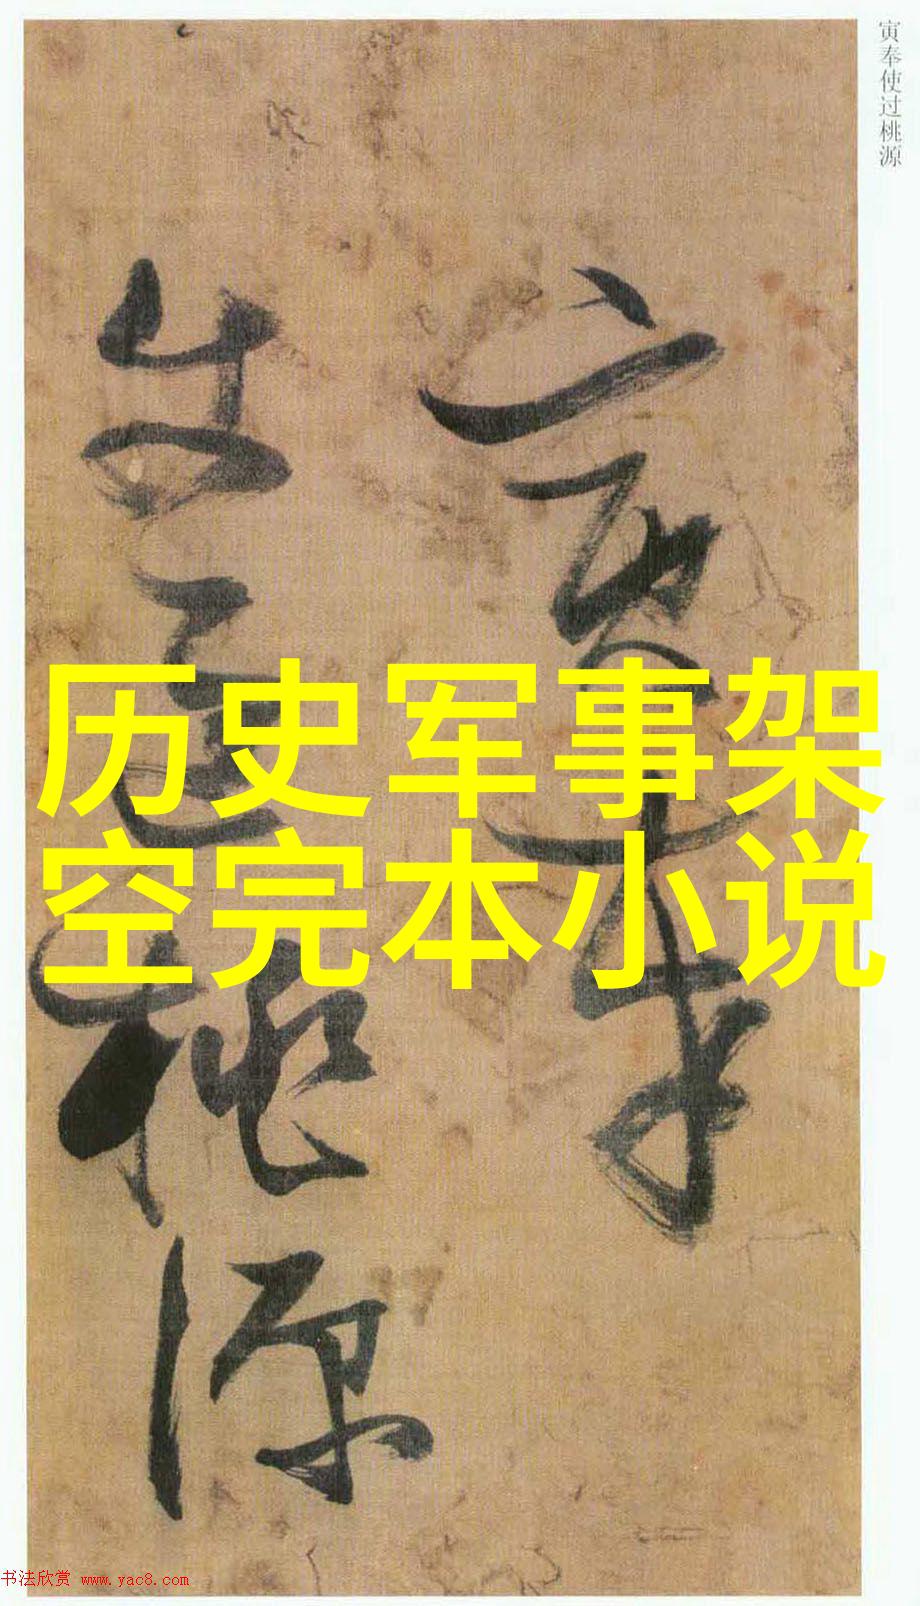 寅奉使过桃源
寅奉
使过桃源
历史军事架
空完本小说
书法欣赏 www.yac8.com